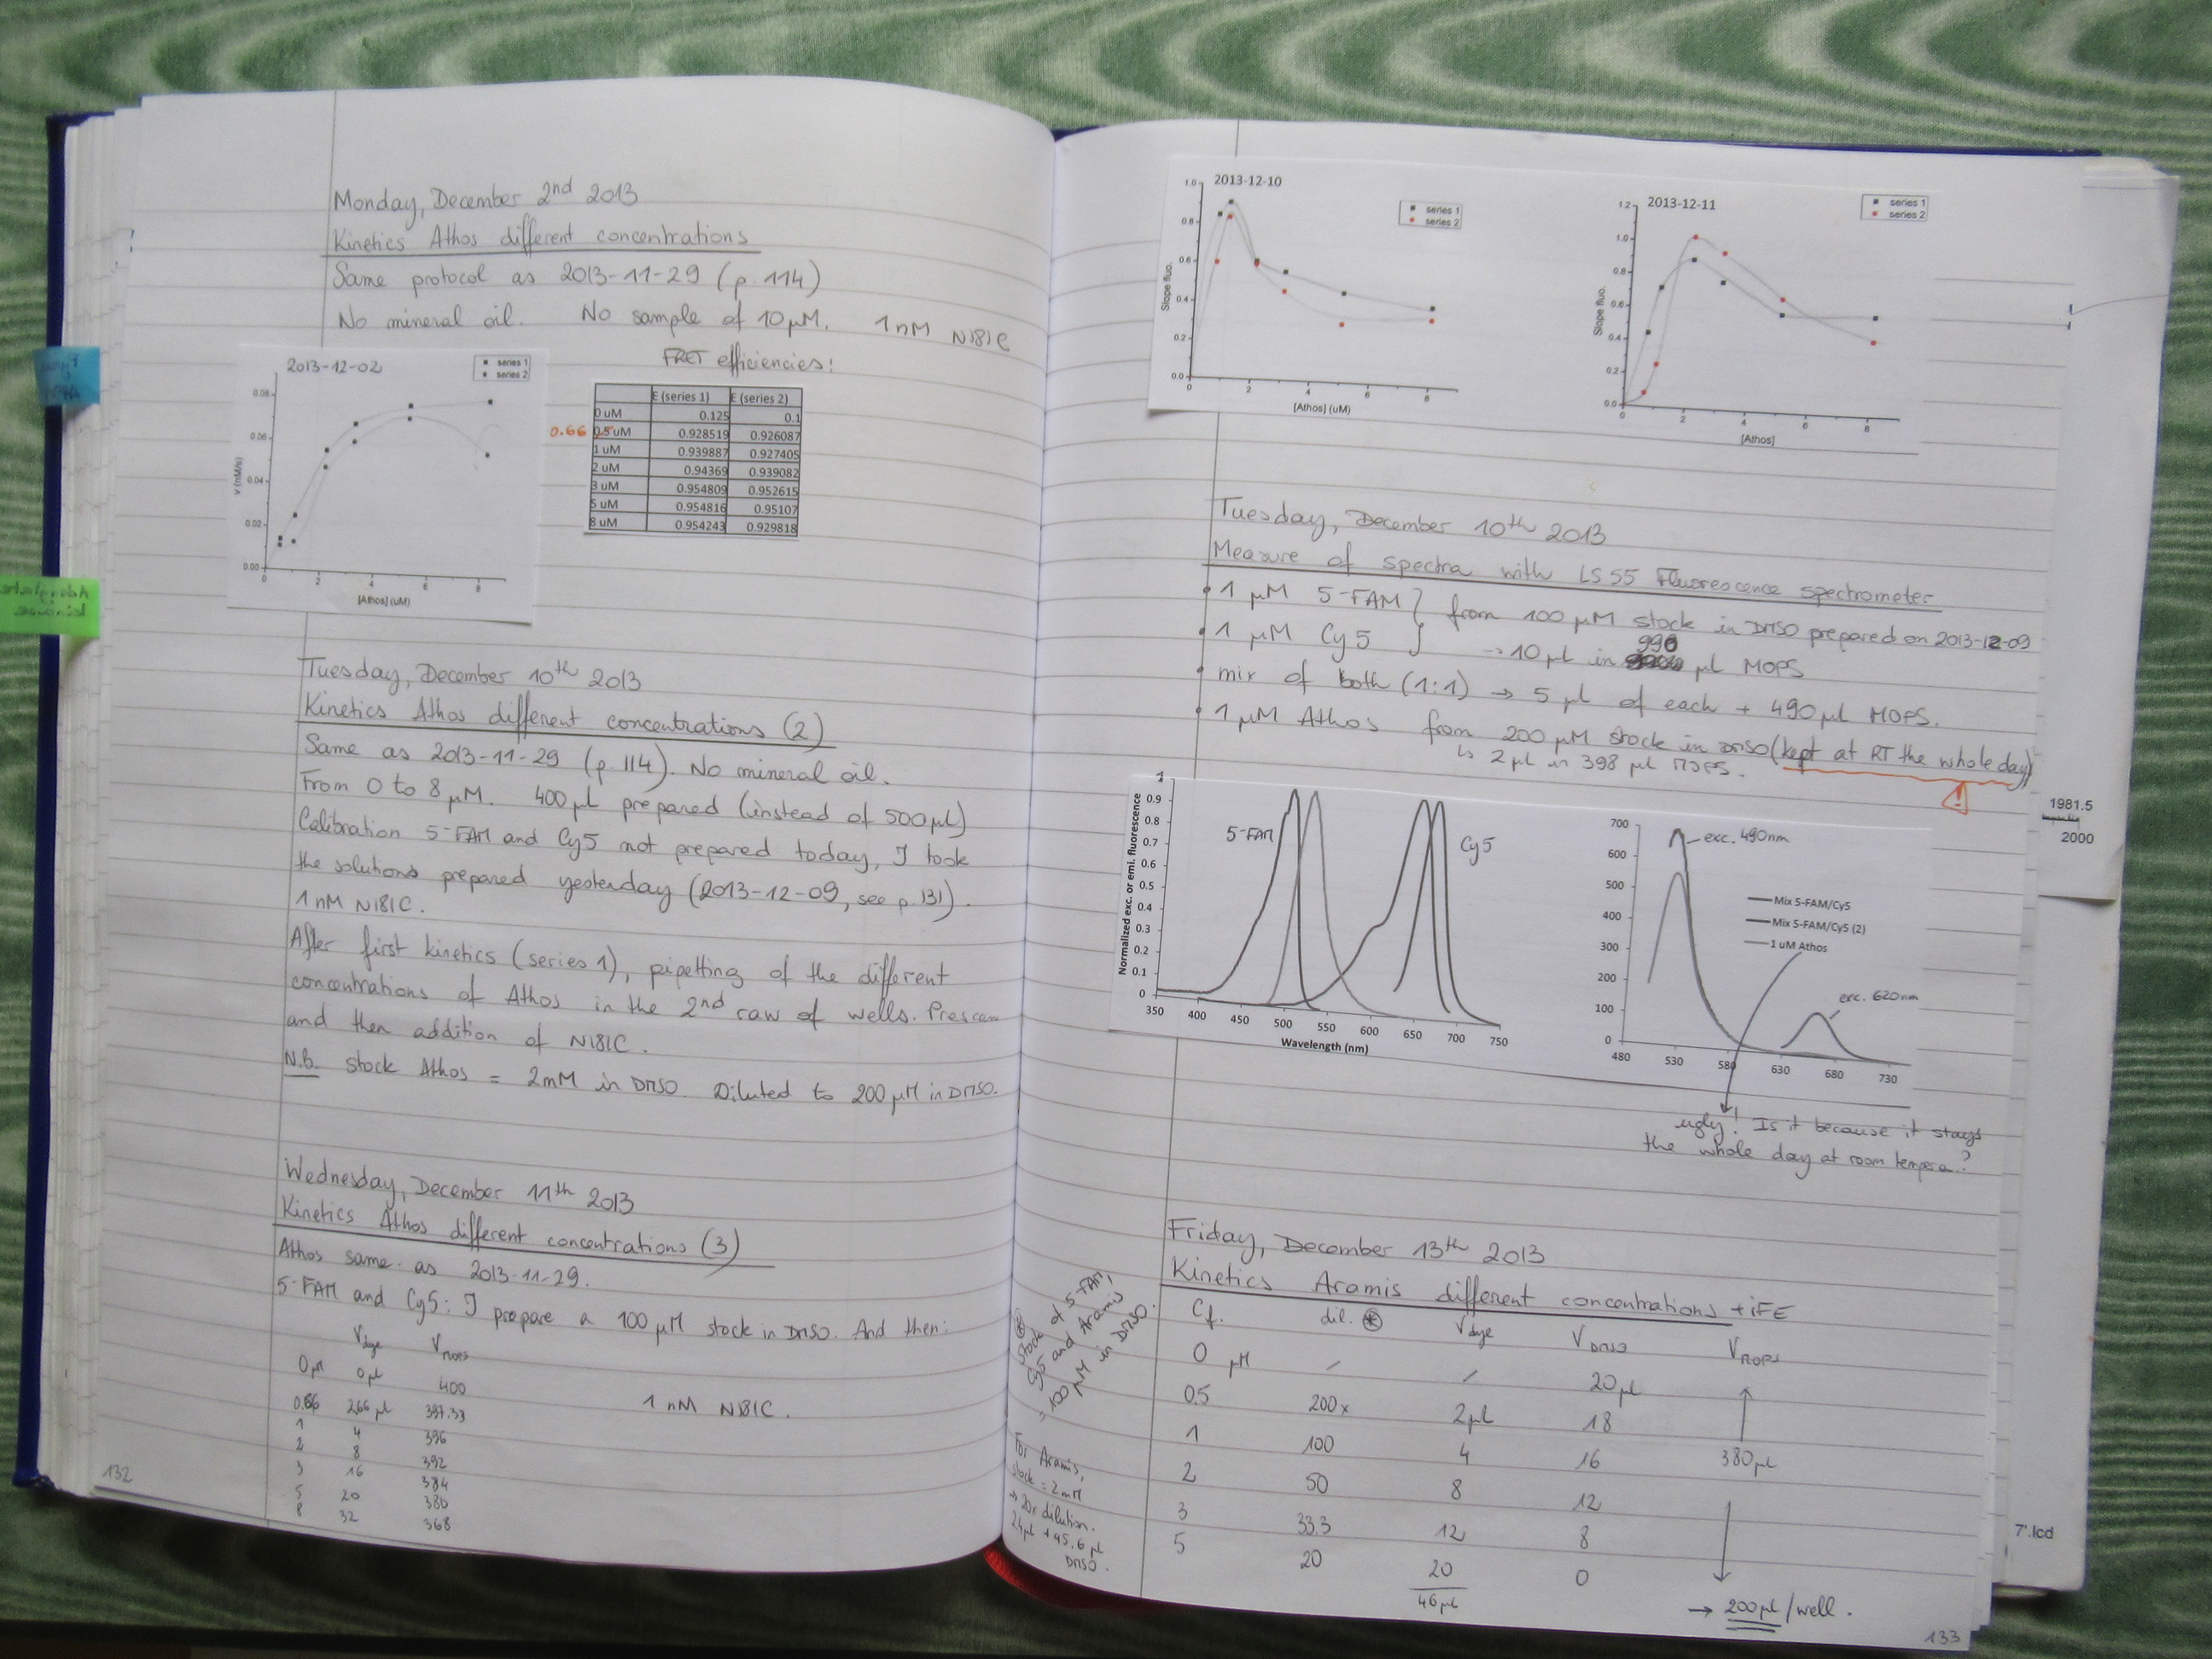 Monday, December 2nd 2013
Kinetics Athos different concentrations
Same protocol as 2013-11-29 (p. 114)
No mineral oil. No sample of 10 µM. 1 nM N181C
FRET efficiencies:
2013-12-02
series 1
series 2
0.08
0.06
0.04
0.02
0.00
v (nM/s)
0 2 4 6 8
[Athos] (uM)
E (series 1) E (series 2)
0 uM 0.125 0.1
0.66 0.5 uM 0.928519 0.926087
1 uM 0.939887 0.927405
2 uM 0.94369 0.939082
3 uM 0.954809 0.952615
5 uM 0.954816 0.95107
8 uM 0.954243 0.929818
Tuesday, December 10th 2013
Kinetics Athos different concentrations (2)
Same as 2013-11-29 (p. 114). No mineral oil.
From 0 to 8 µM. 400 µl prepared (instead of 500 µl)
Calibration 5-FAM and Cy5 not prepared today, I took
the solutions prepared yesterday (2013-12-09, see p. 131).
1 nM N181C.
After first kinetics (series 1), pipetting of the different
concentrations of Athos in the 2nd raw of wells. Prescan
and then addition of N181C.
N.B. stock Athos = 2mM in DMSO. Diluted to 200 µM in DMSO.
Wednesday, December 11th 2013
Kinetics Athos different concentrations (3)
Athos same as 2013-11-29.
5-FAM and Cy5: I prepare a 100 µM stock in DMSO. And then:
Vdye VMOPS
0 µM 0 µl 400
0.66 2.66 µl 397.33
1 4 396
2 8 392
3 16 384
5 20 380
8 32 368
1 nM N181C.
132
2013-12-10
series 1
series 2
1.0
0.8
0.6
0.4
0.2
0.0
Slope fluo.
0 2 4 6 8
[Athos] (uM)
2013-12-11
series 1
series 2
1.2
1.0
0.8
0.6
0.4
0.2
0.0
Slope fluo.
0 2 4 6 8
[Athos]
Tuesday, December 10th 2013
Measure of spectra with LS55 Fluorescence spectrometer
• 1 µM 5-FAM } from 100 µM stock in DMSO prepared on 2013-12-09
• 1 µM Cy5 → 10 µl in 990 µl MOPS
• mix of both (1:1) → 5 µl of each + 490 µl MOPS.
• 1 µM Athos from 200 µM stock in DMSO (kept at RT the whole day)
↳ 2 µl in 398 µl MOPS.
!
1
0.9
0.8
0.7
0.6
0.5
0.4
0.3
0.2
0.1
0
Normalized exc. or emi. fluorescence
5-FAM
Cy5
350 400 450 500 550 600 650 700 750
Wavelength (nm)
700
600
500
400
300
200
100
0
exc. 490nm
Mix 5-FAM/Cy5
Mix 5-FAM/Cy5 (2)
1 uM Athos
exc. 620nm
480 530 580 630 680 730
ugly! Is it because it stays
the whole day at room tempera.?
1981.5
2000
Friday, December 13th 2013
Kinetics Aramis different concentrations + iFE
Cf. dil. * Vdye VDMSO VMOPS
0 µM / / 20 µl
0.5 200x 2 µl 18
1 100 4 16 380 µl
2 50 8 12
3 33.3 12 8
5 20 20 0
46 µl
→ 200 µl / well.
*
Stock of 5-FAM,
Cy5 and Aramis
= 100 µM in DMSO.
For Aramis,
stock = 2 mM
→ 20x dilution.
2.4 µl + 45.6 µl
DMSO.
7'.lcd
133